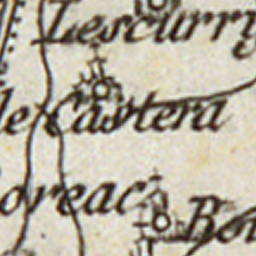 Lescurry
le Castera
oreac